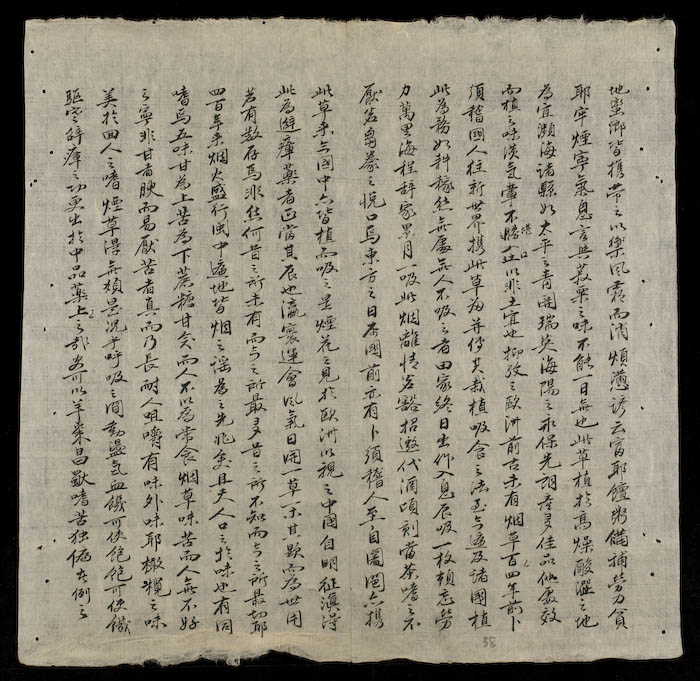 地蠻鄉皆携帶之以樂風霜而消煩懣諺云富耶饘粥備補勞力貧
耶寧煙寧氣息言與菽粟之味不能一日無也此草植於高燥酸濕之地
為宜瀕海諸縣如太平之青關瑞英海陽之永保先明產多佳品他處效
而植之味淡氣薄不堪口以非土宜也抑攷之歐洲前古未有烟草百四年前卜
須稽國人往新世界携此草歸并傳其栽植吸含之法至今遍及諸國植
此為務如科稼然無處無人不吸之者田家終日出作入息辰吸一枚頓忘勞
力萬里海程辞家累月一吸此烟離情若豁招邀代酒頃刻當茶嗜之不
厭若芻豢之悅口焉東方之日本國前亦有卜須稽人至自國亦携
此草來今國中亦皆植而吸之是煙花之見於歐洲以視之中國自明征滇得
此為避瘴藥者正當其辰也瀛寰運會風氣日開一草一木其顯而為世用
若有数存焉非然何昔之所未有而今之所最多昔之所不知而今之所最切耶
四百年來烟火盛行閩中遍地皆烟之謠為之先兆矣且夫人口之於味也有同
嗜焉五味甘為上苦為下蔗糖甘矣而人不以為常食烟草味苦而人無不好
之寧非甘者腴而易厭苦者真而乃長耐人咀嚼有味外味耶橄欖之味
美於回人之嗜煙草得無類是況乎呼吸之間動盪氣血饑可使飽飽可使饑
驅寒辟瘴之功更出於中品藥上之部安可以羊棗昌歜嗜苦独偏者例之
38